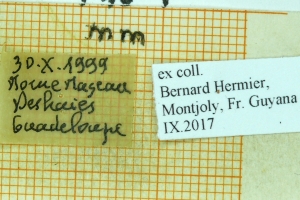 mm
30.X.1999
Morne Mazeau
Deshaies
Guadeloupe
ex coll.
Bernard Hermier,
Montjoly, Fr. Guyana
IX.2017